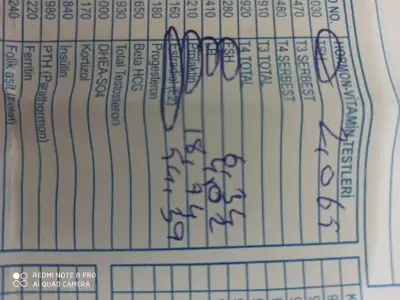 D NO. HORMON-VİTAMİN TESTLERİ
030 TSH 2,065
470 T3 SERBEST
480 T4 SERBEST
910 T3 TOTAL
920 T4 TOTAL
280 FSH 6,34
410 LH
210 Prolaktin 18,74
160 Estradiol (E2) 54,39
Progesteron
650 Beta HCG
930 Total Testosteron
000 DHEA-SO4
170 Kortizol
840 Insulin
980 PTH (Parathormon)
220 Ferritin
240 Folik asit (Folat)
REDMI NOTE 8 PRO
AI QUAD CAMERA